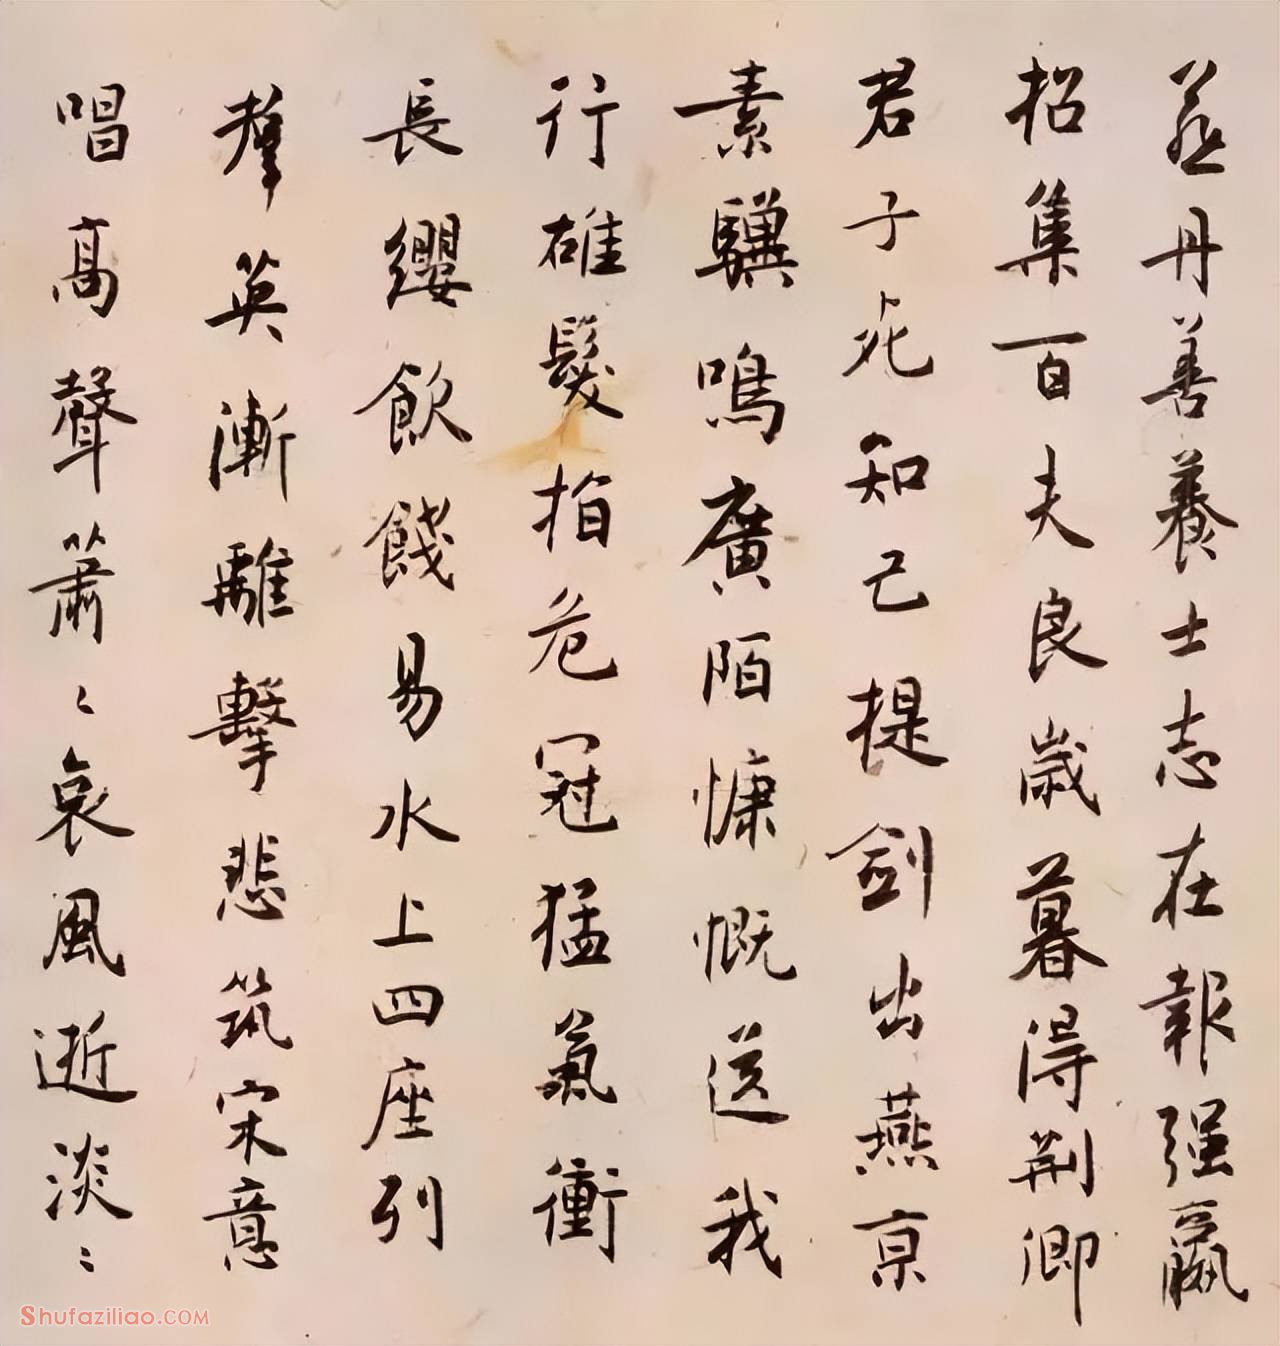 燕丹善養士志在報强嬴
招集百夫良歳暮得荆卿
君子死知己提劍出燕京
素驥鳴廣陌慷慨送我
行雄髮指危冠猛氣衝
長纓飲餞易水上四座列
羣英漸離擊悲筑宋意
唱高聲蕭〻哀風逝淡〻
Shufaziliao.COM